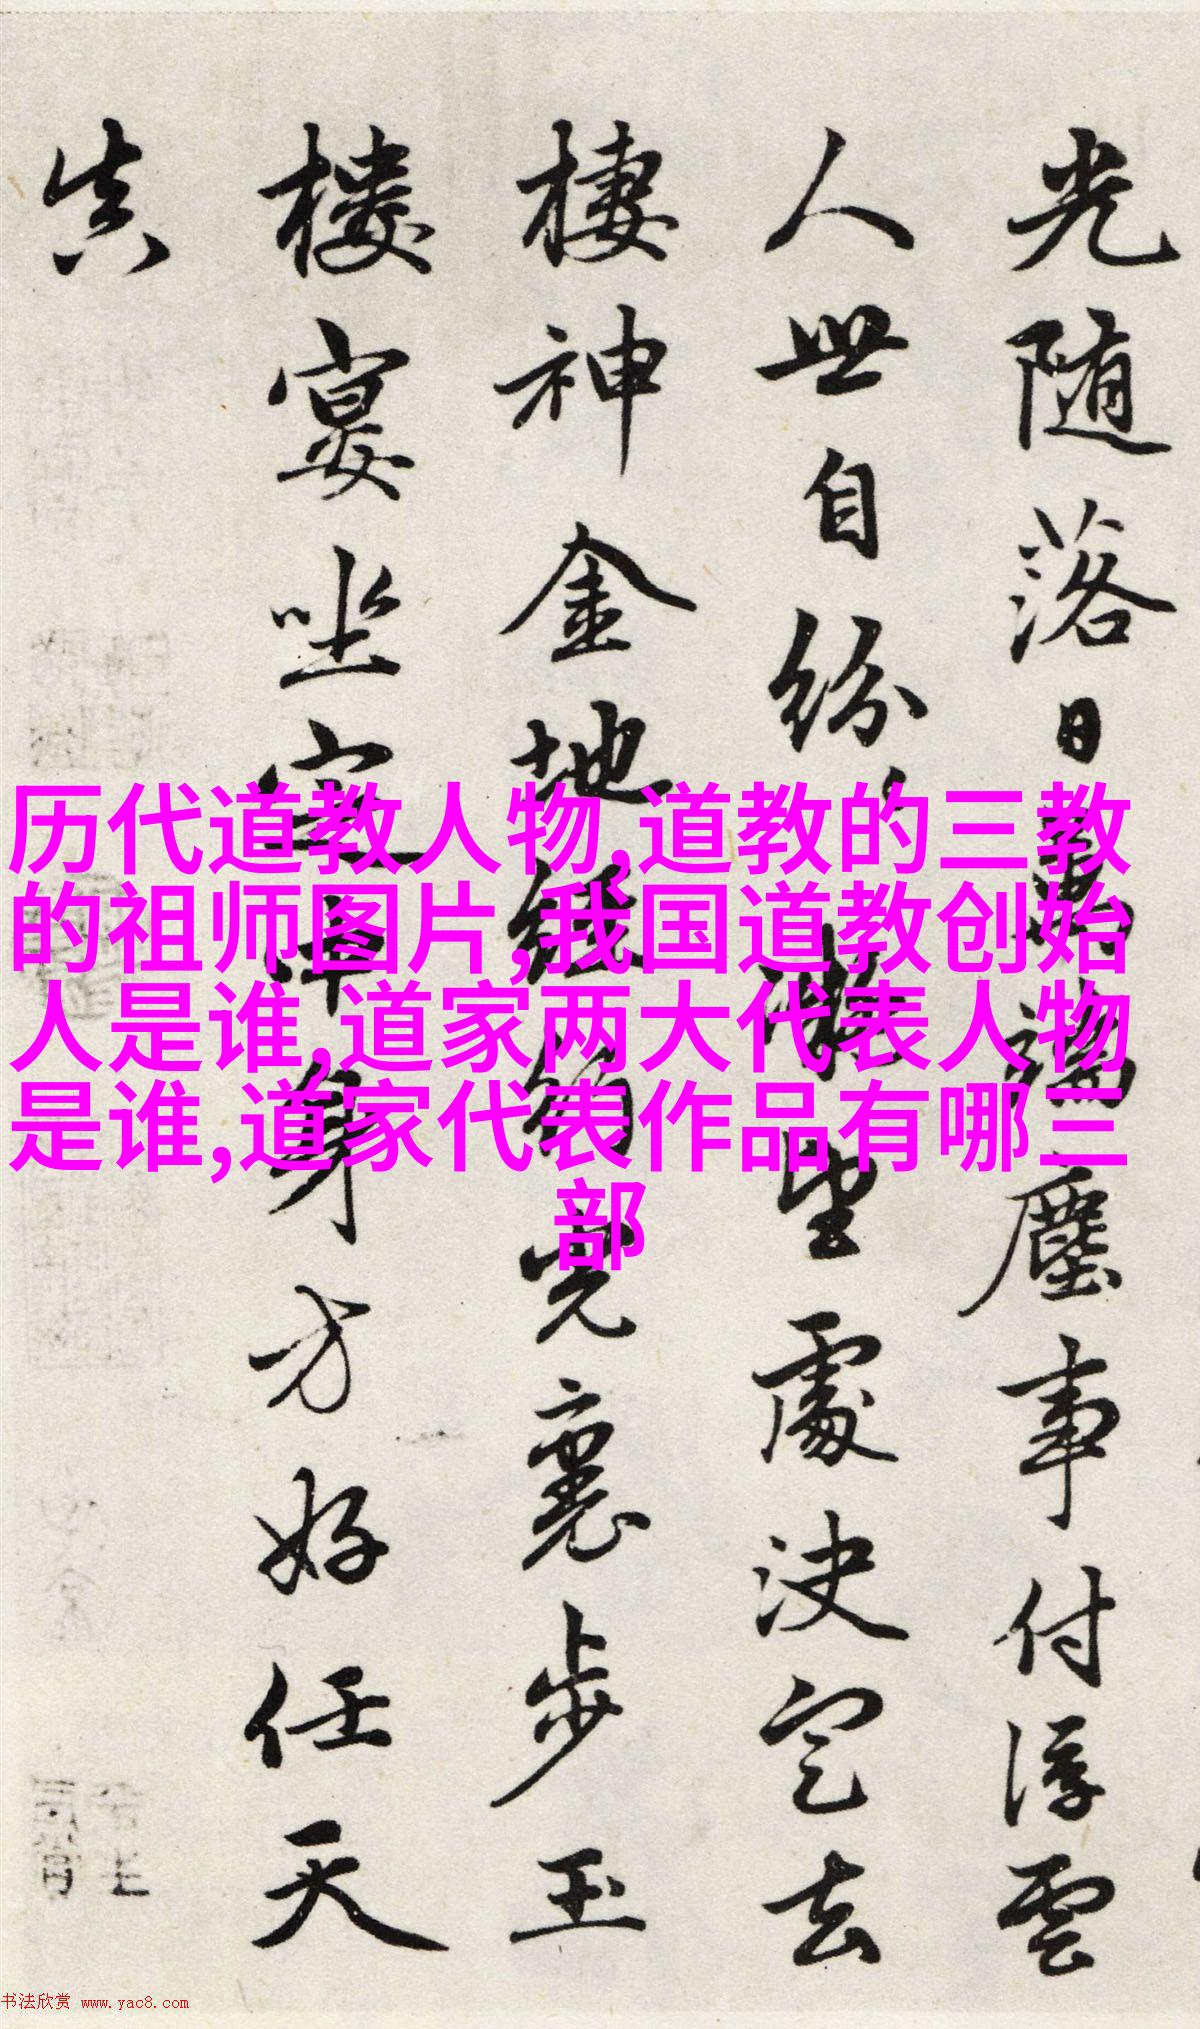 光随落日端塵事付浮雲
人世自紛〻望處決定去
棲神金地經裏步玉
樓宴坐定中身方好任天
真
历代道教人物,道教的三教
的祖师图片,我国道教创始
人是谁,道家两大代表人物
是谁,道家代表作品有哪三
部
书法欣赏 www.yac8.com